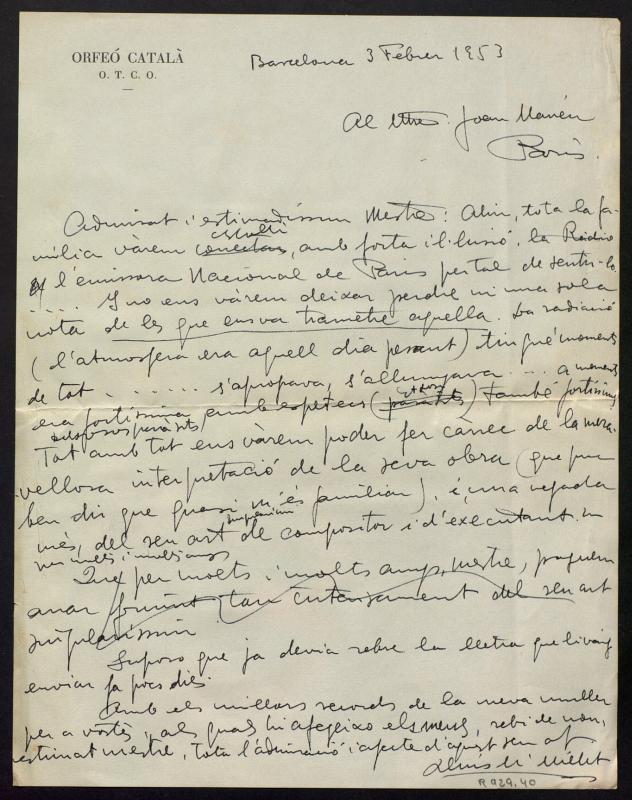 ORFEÓ CATALÀ
O. T. C. O.
Barcelona 3 Febrer 1953
Al Mtre. Joan Manén
París.
Admirat i estimadíssim Mestre: Ahir, tota la fa-
mília vàrem connectar, amb forta il·lusió, la Ràdio
l'emissora Nacional de París per tal de sentir-lo
..... I no ens vàrem deixar perdre ni una sola
nota de les que ens va trametre aquella. La radiació
(l'atmosfera era aquell dia pesant) tingué moments
de tot ...... s'apropava, s'allunyava ... a moments
era fortíssima amb espetecs (paràsits) també fortíssims
Tot amb tot ens vàrem poder fer càrrec de la mera-
vellosa interpretació de la seva obra (que puc
ben dir que quasi m'és familiar), i, una vegada
més, del seu art de compositor i d'executant.
per molts i molts anys
Que per molts i molts anys, mestre, poguem
anar fruint tan intensament del seu art
singularíssim
Suposo que ja devia rebre la lletra que li vaig
enviar fa pocs dies.
Amb els millors records de la meva muller
per a vostès, als quals hi afegeixo els meus, rebi de nou,
estimat mestre, tota l'admiració i afecte d'aquest seu af
Lluís Mª Millet
R 929.40